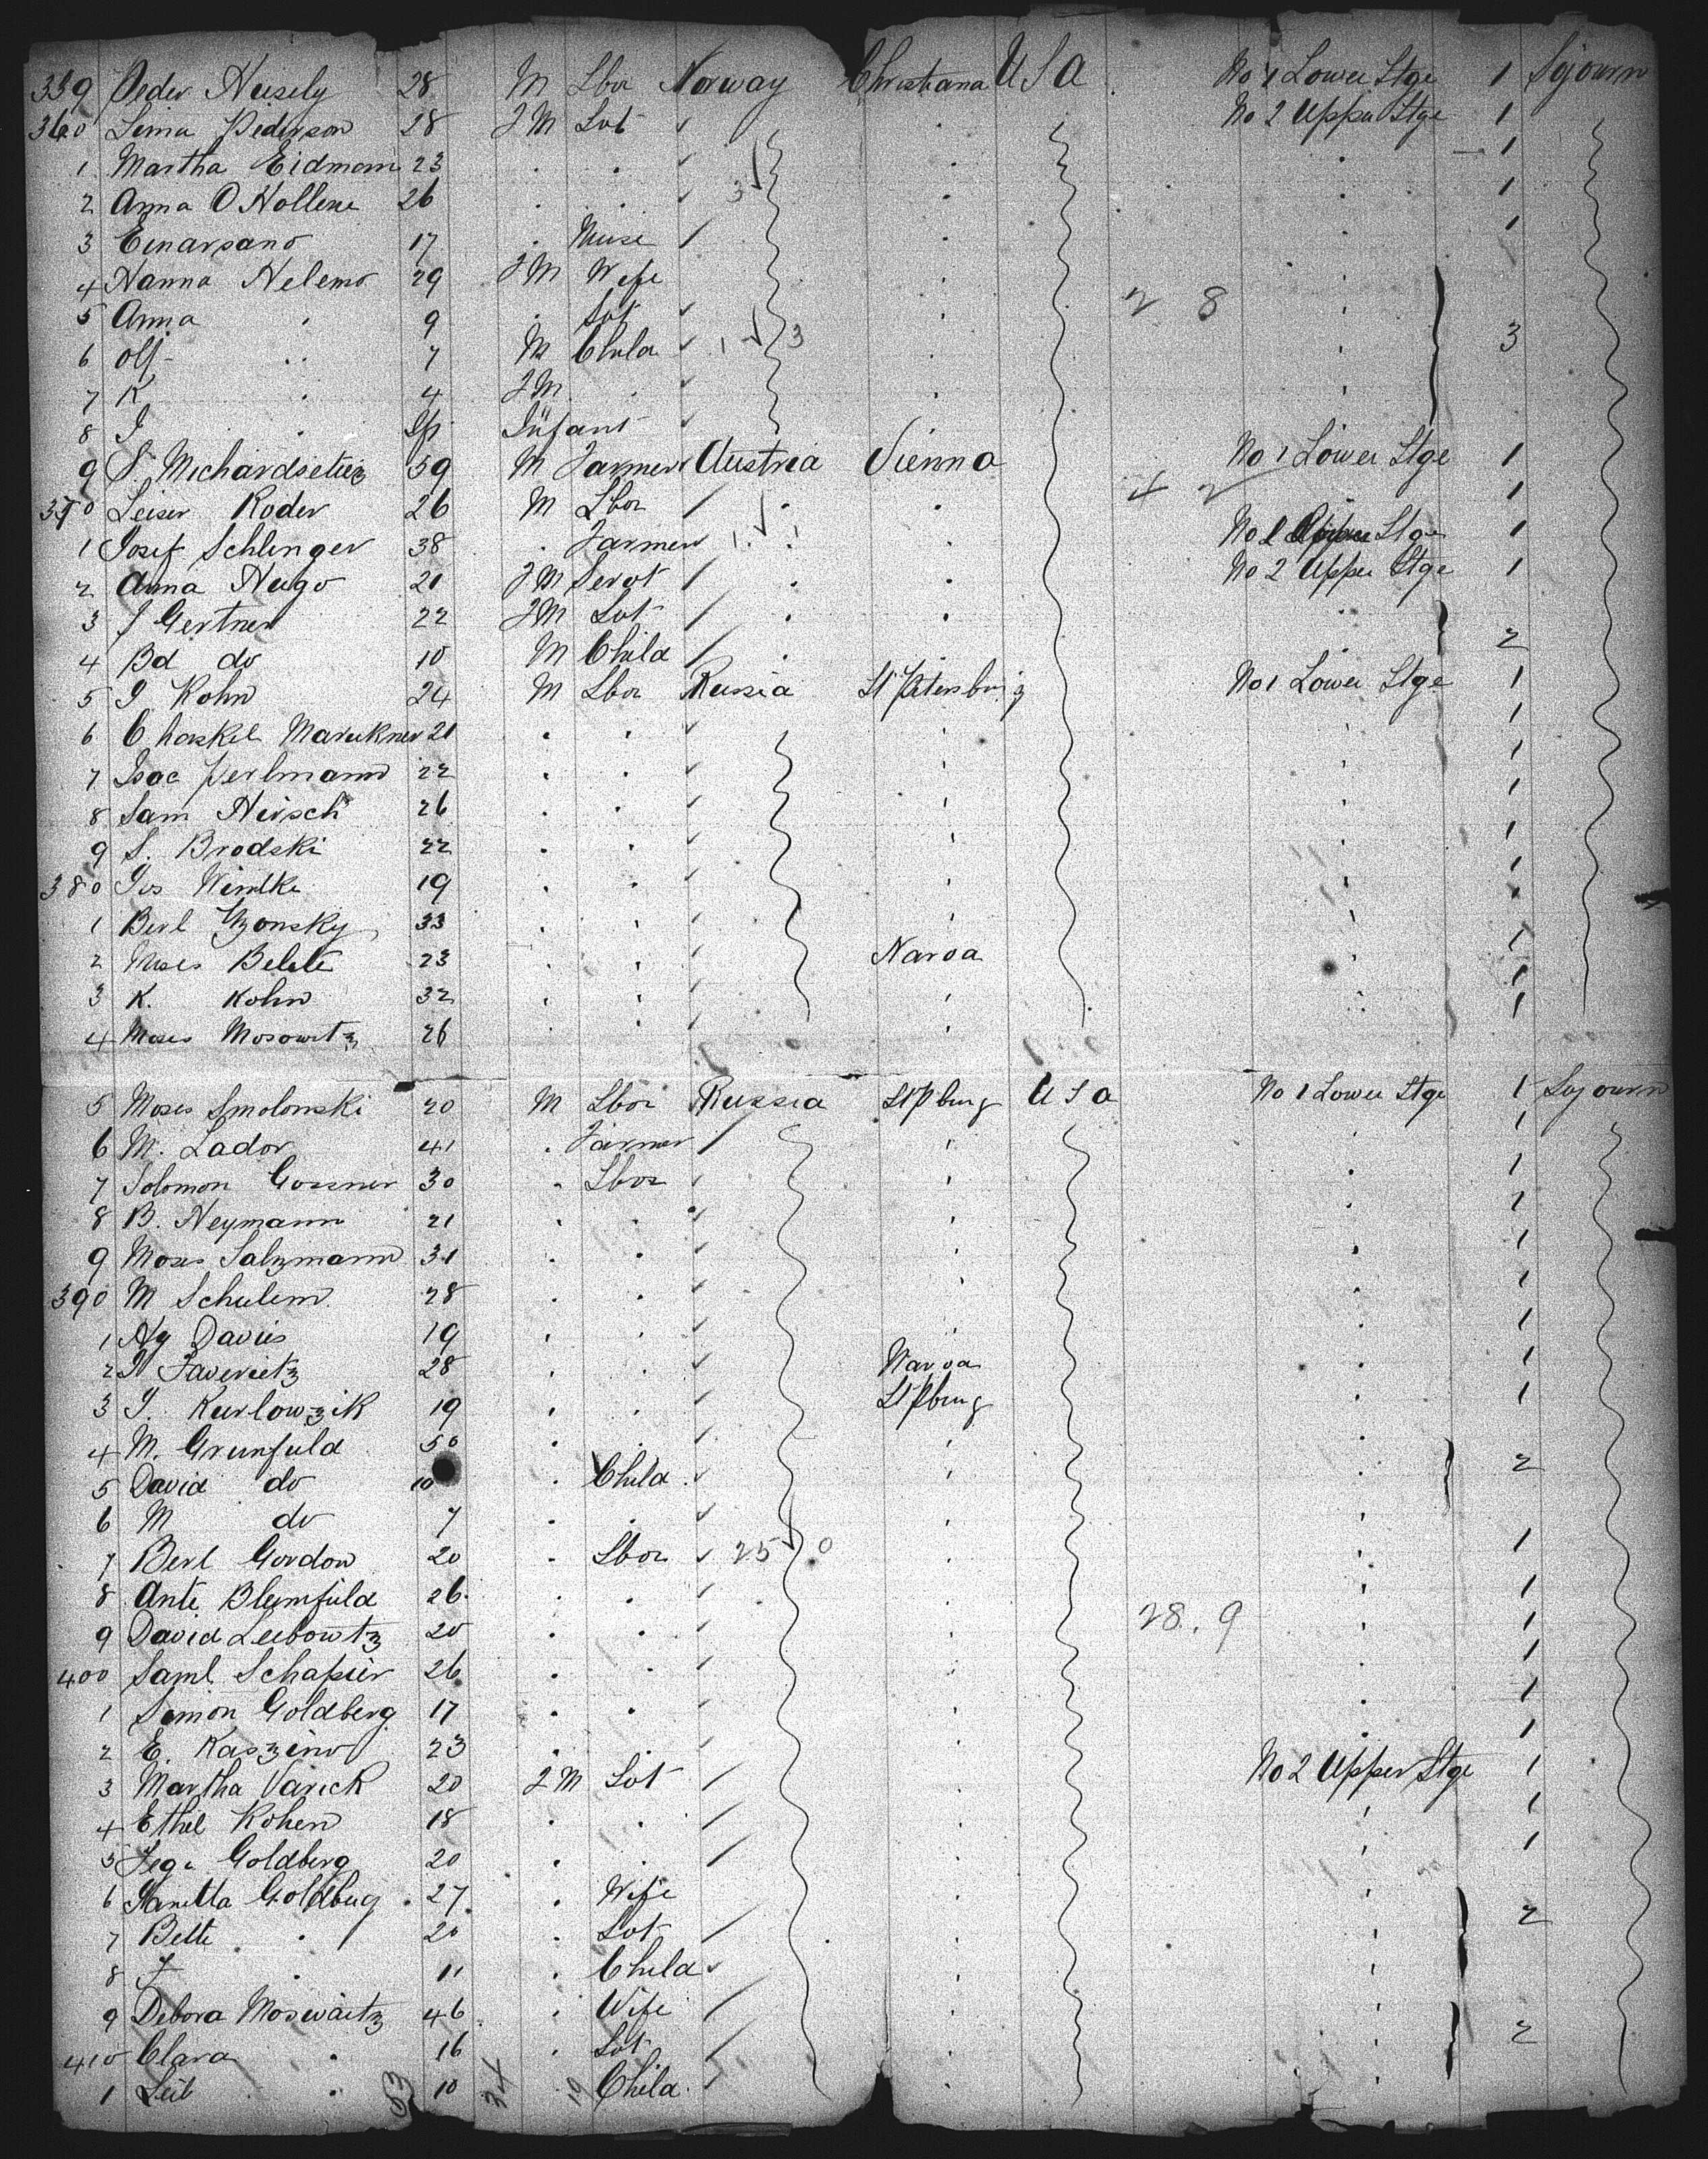 359 Peder Neisely 28 M Lbor Norway Christiana USA No 1 Lower Stge 1 Sojourn
360 Lema Pederson 28 FM Sot No 2 Upper Stge 1
1 Martha Eidmom 23 1
2 Anna O Hollene 26 3 1
3 Einarsano 17 1
4 Hanna Nelemo 29 FM Wife 2 8
5 Anna 9 Sot
6 Olf 7 M Child 1 3 3
7 K 4 FM
8 I Infant
9 S. 59 M Farmer Austria Vienna No 1 Lower Stge 1
370 Leiser Roder 26 M Lbor 4 2 1
1 Josef Schlinger 38 Farmer 1 1 Stge 1
2 Anna Hugo 21 FM Servt No 2 Upper Stge 1
3 J Gertner 22 FM Sot
4 Bd do 10 M Child 2
5 I Kohn 24 M Lbor Russia St Petersburg No 1 Lower Stge 1
6 Chaskel Marukner 21 1
7 Isac Perlmann 22 1
8 Sam Hirsch 26 1
9 S. Brodski 22 1
380 Jos Windke 19 1
1 Berl 33 1
2 Moses Belete 23 Narva 1
3 K. Kohn 32 1
4 Moses Mosowitz 26 1
5 Moses Smolonski 20 M Lbor Russia St Pburg USA No 1 Lower Stge 1 Sojourn
6 M. Lador 41 Farmer 1
7 Solomon Gossner 30 Lbor 1
8 B. Neymann 21 1
9 Moses Salzmann 31 1
390 M Schulem 28 1
1 Hy Davis 19 1
2 28 Narva 1
3 I. Kurlowzik 19 St Pburg 1
4 M. Grunfuld 50
5 David do 10 Child 2
6 M do 7
7 Berl Gordon 20 Lbor 25 0 1
8 Anti Blumfuld 26 1
9 David Leibowtz 20 28. 9 1
400 Saml Schapier 26 1
1 Simon Goldberg 17 1
2 E. Kaszino 23 1
3 Martha Varick 20 FM Sot No 2 Upper Stge 1
4 Ethel Kohen 18 1
5 Goldberg 20 1
6 Goldbug 27 Wife
7 Bette 20 Sot 2
8 J 11 Child
9 Debora Moswaitz 46 Wife
410 Clara 16 Sot 2
1 Leib 10 Child
63 34 19